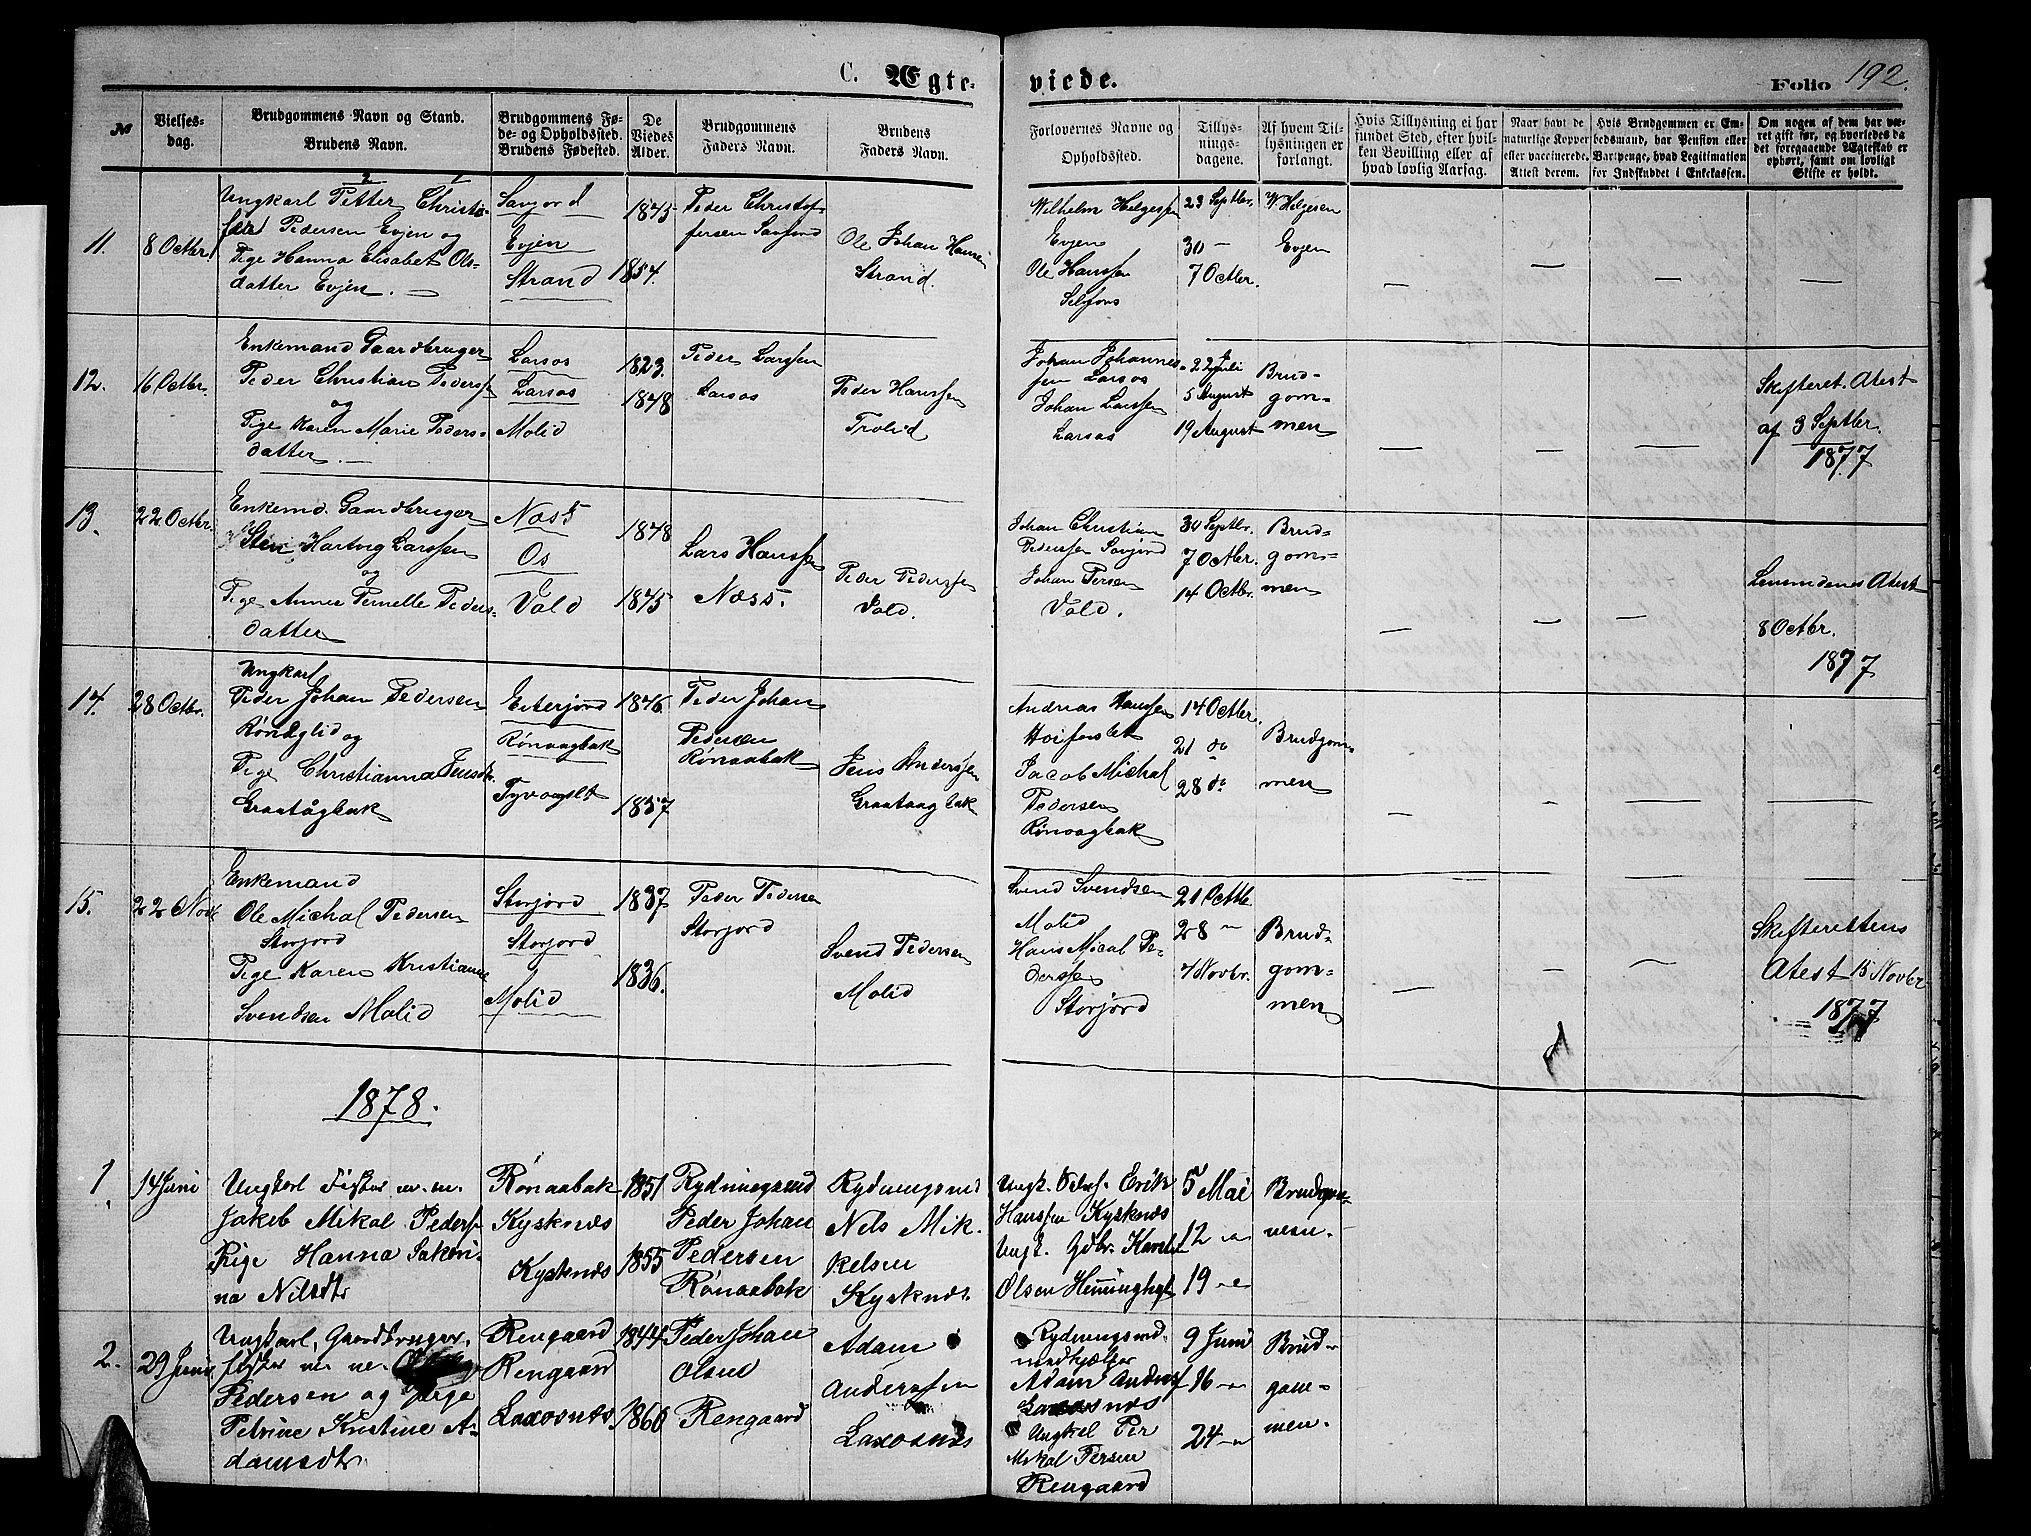 C. Ægteviede.
Folio 192.
No
Vielsesdag.
Brudgommens Navn og Stand.
Brudens Navn.
Brudgommens Føde- og Opholdssted.
Brudens Fødested.
De Viedes Alder.
Brudgommens Faders Navn.
Brudens Faders Navn.
Forlovernes Navne og Opholdssted.
Tillysningsdagene.
Af hvem Tillysningen er forlangt.
Hvis Tillysning ei har fundet Sted, efter hvilken Bevilling eller af hvad lovlig Aarsag.
Naar havt de naturlige Kopper eller vaccinerede. Attest derom.
Hvis Brudgommen er Embedsmand, har Pension eller Vartpenge, hvad Legitimation for Indskuddet i Enkekassen.
Om nogen af dem har været gift før, og hvorledes da det foregaaende Ægteskab er ophørt, samt om lovligt Skifte er holdt.
11.
8 Octbr.
Ungkarl Petter Christo-
Pedersen Evjen og
Pige Hanna Elisabet Ols-
datter Evjen. —
Savjord
Evjen
Strand
1845
1854.
Peder Christof-
fersen Savjord
Ole Johan Hansen
Strand.
Wilhelm Helgesen
Evjen
Ole Hanssen
23 Septbr.
30 —
7 Octbr.
W. Helgesen
Evjen
12.
16 Octbr.
Enkemand Gaardbruger
Peder Christian Pederss
og
Pige Karen Marie Peders-
datter. —
Larsos
Larsos
Molid
1823.
1848
Peder Larssen
Larsos
Peder Hanssen
Trolid
Johan Johannes-
sen Larsos
Johan Larssen
Larsos
22 Juli
5 August
19 August
Brud-
gom-
men
Skifteret. Atest
af 3 Septbr.
1877
13.
22 Octbr.
Enkemd. Gaardbruger
Sten Hartvig Larssen
og
Pige Anne Pernelle Peders-
datter
Næss
Os
Vald
1848
1845
Lars Hanssen
Næss.
Peder Pederssen
Vald.
Johan Christian
Pederssen Savjord
Johan Persen
Vald.
30 Septbr.
7 Octbr.
14 Octbr.
Brud-
gom-
men
Atest
8 Octbr.
1877
14.
28 Octbr.
Ungkarl
Peder Johan Pedersen
og
Pige Christianna Jensdtr
Graatågbak
Esterjord
Rønaagbak
1846
1857
Peder Johan
Pedersen
Rønaabak
Jens Anderssen
Graataagbak
Andreas Hanssen
Jacob Michal
Pedersen
Rønaagbak
14 Octbr.
21 do
28 do
Brudgom-
men
15.
22 Novb
Enkemand
Ole Michal Pedersen
Storjord
Pige Karen Kristianne
Svendsen Molid
Storjord
Storjord
Molid
1837
1836.
Peder Pedersen
Storjord
Svend Pedersen
Molid
Svend Svendsen
Molid
Hans Mical Pe-
derssen
Storjord
21 Octbr
28 —
4 Novbr.
Brud-
gom-
men
Skifterettens
Atest 15 Novbr
1877
1878.
1.
14 Juni
Ungkarl Fisker m. m.
Jakob Mikal Peders
Pige Hanna Jakobi-
na Nilsdtr
Rønaabak
Kysknæs
Kysknæs
1851
1855
Rydningsmd
Peder Johan
Pedersen
Rønaabak
Rydningsmd
Nels Mik-
kelsen
Kysknæs.
Ungk. Erik
Hanssen Kysknæs
Ungk. Gdbr.
Olsen
5 Mai
12 —
19 —
Brudgom-
men.
2.
29 Juni
Ungkarl, Gaardbruger,
Fisker m. m.
Pedersen og Pige
Petrine Kristine A-
damsdtr.
Rengaard
Rengaard
Laxosnæs
1844
1860
Peder Johan
Olsen
Rengaard
Adam
Anderssen
Laxosnæs
Rydningsmd.
medhjælper
Adam Anders
Laxosnæs
Ungkrl Per
Mikal Persen
Rengaard
9 Juni
16 —
24 —
Brud-
gom-
men.